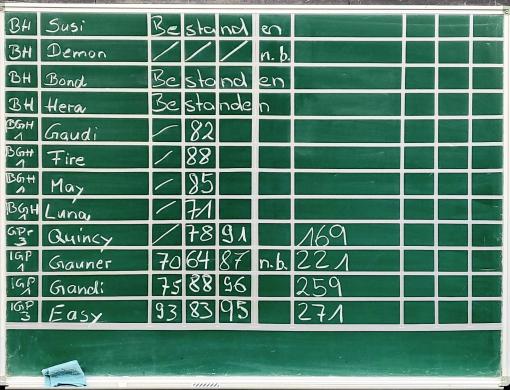 BH Susi Bestanden
BH Demon / / / n.b.
BH Bond Bestanden
BH Hera Bestanden
BGH 1 Gaudi / 82
BGH 1 Fire / 88
BGH 1 May / 85
BGH 1 Luna / 71
GPr 3 Quincy / 78 91 169
IGP 1 Gauner 70 64 87 n.b. 221
IGP 1 Gandi 75 88 96 259
IGP 3 Easy 93 83 95 271